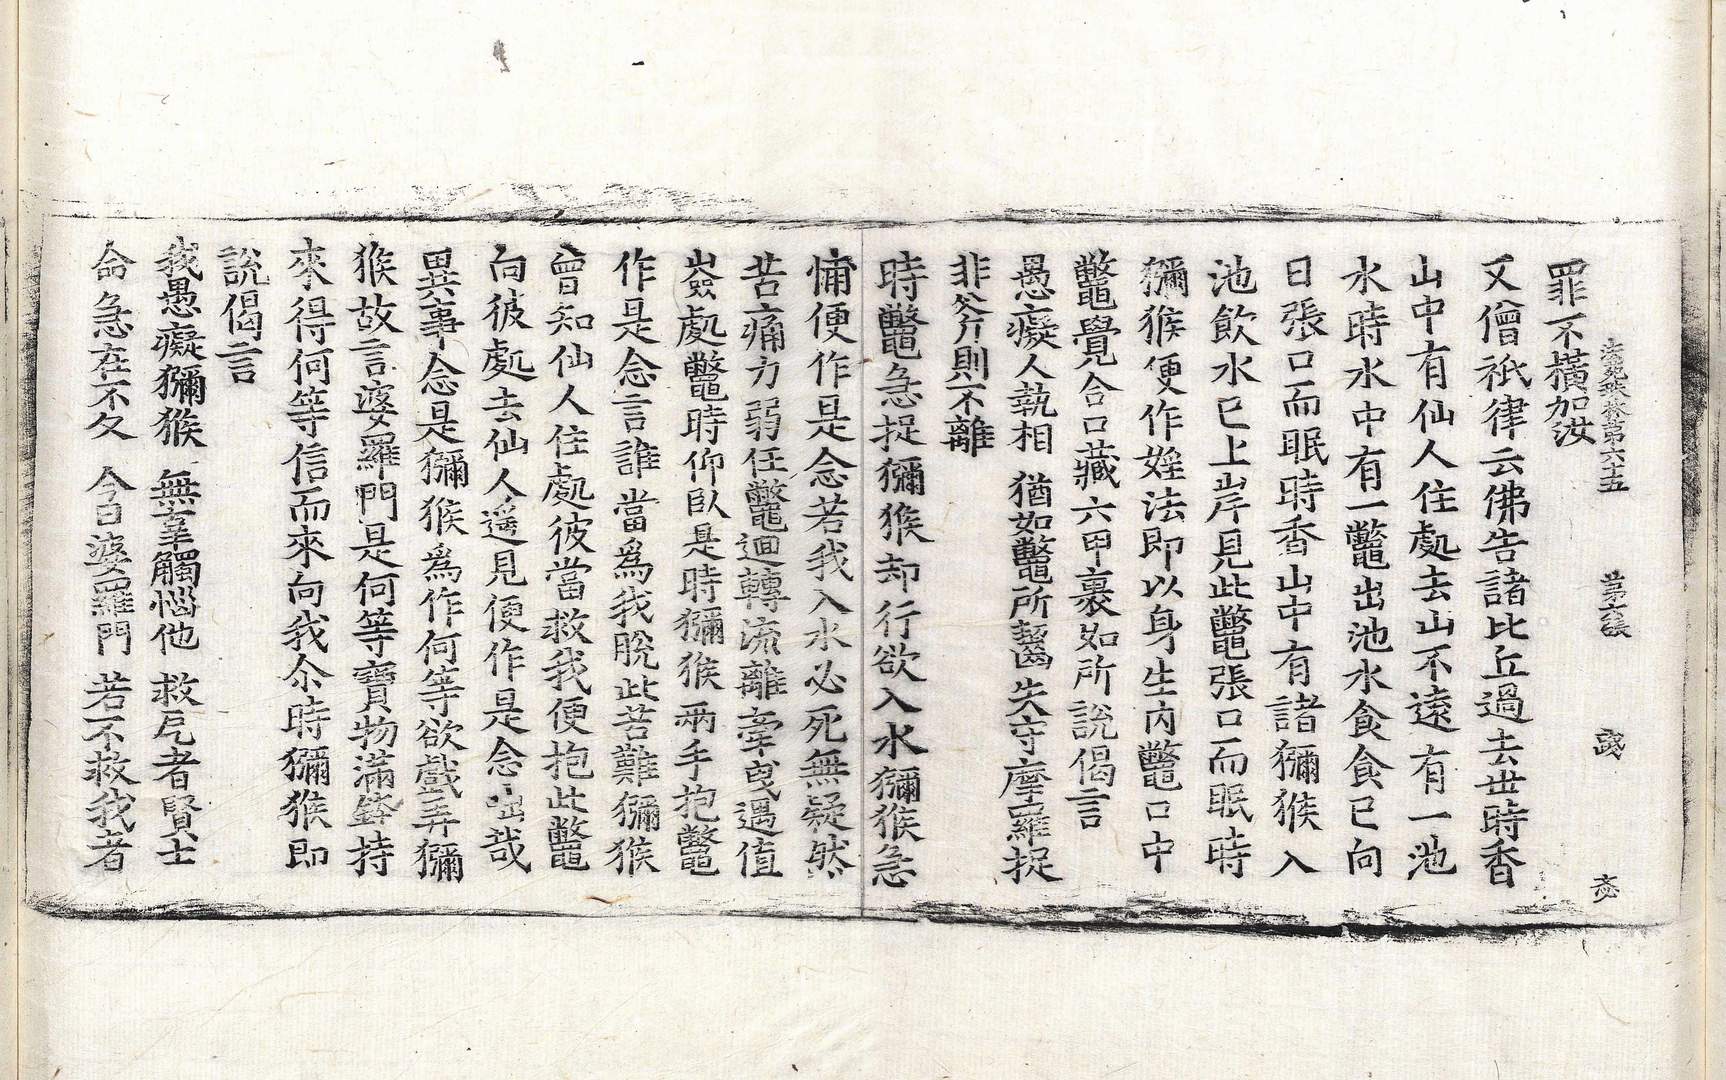 法苑珠林第六十五 第六張 茂
罪不橫加汝
又僧祇律云佛告諸比丘過去世時香
山中有仙人住處去山不遠有一池
水時水中有一鼈出池水食食已向
日張口而眠時香山中有諸獼猴入
池飮水已上岸見此鼈張口而眠時
獼猴便作婬法即以身生內鼈口中
鼈覺合口藏六甲裏如所說偈言
愚癡人執相 猶如鼈所齧 失守摩羅捉
非斧斤則不離
時鼈急捉獼猴却行欲入水獼猴急
悑便作是念若我入水必死無疑然
苦痛力弱任鼈迴轉流離牽曳遇值
嶮處鼈時仰臥是時獼猴兩手抱鼈
作是念言誰當爲我脫此苦難獼猴
曾知仙人住處彼當救我便抱此鼈
向彼處去仙人遙見便作是念咄哉
異事念是獼猴爲作何等欲戲弄獼
猴故言婆羅門是何等寶物滿鉢持
來得何等信而來向我尒時獼猴即
說偈言
我愚癡獼猴 無辜觸惱他 救厄者賢士
命急在不久 今日婆羅門 若不救我者